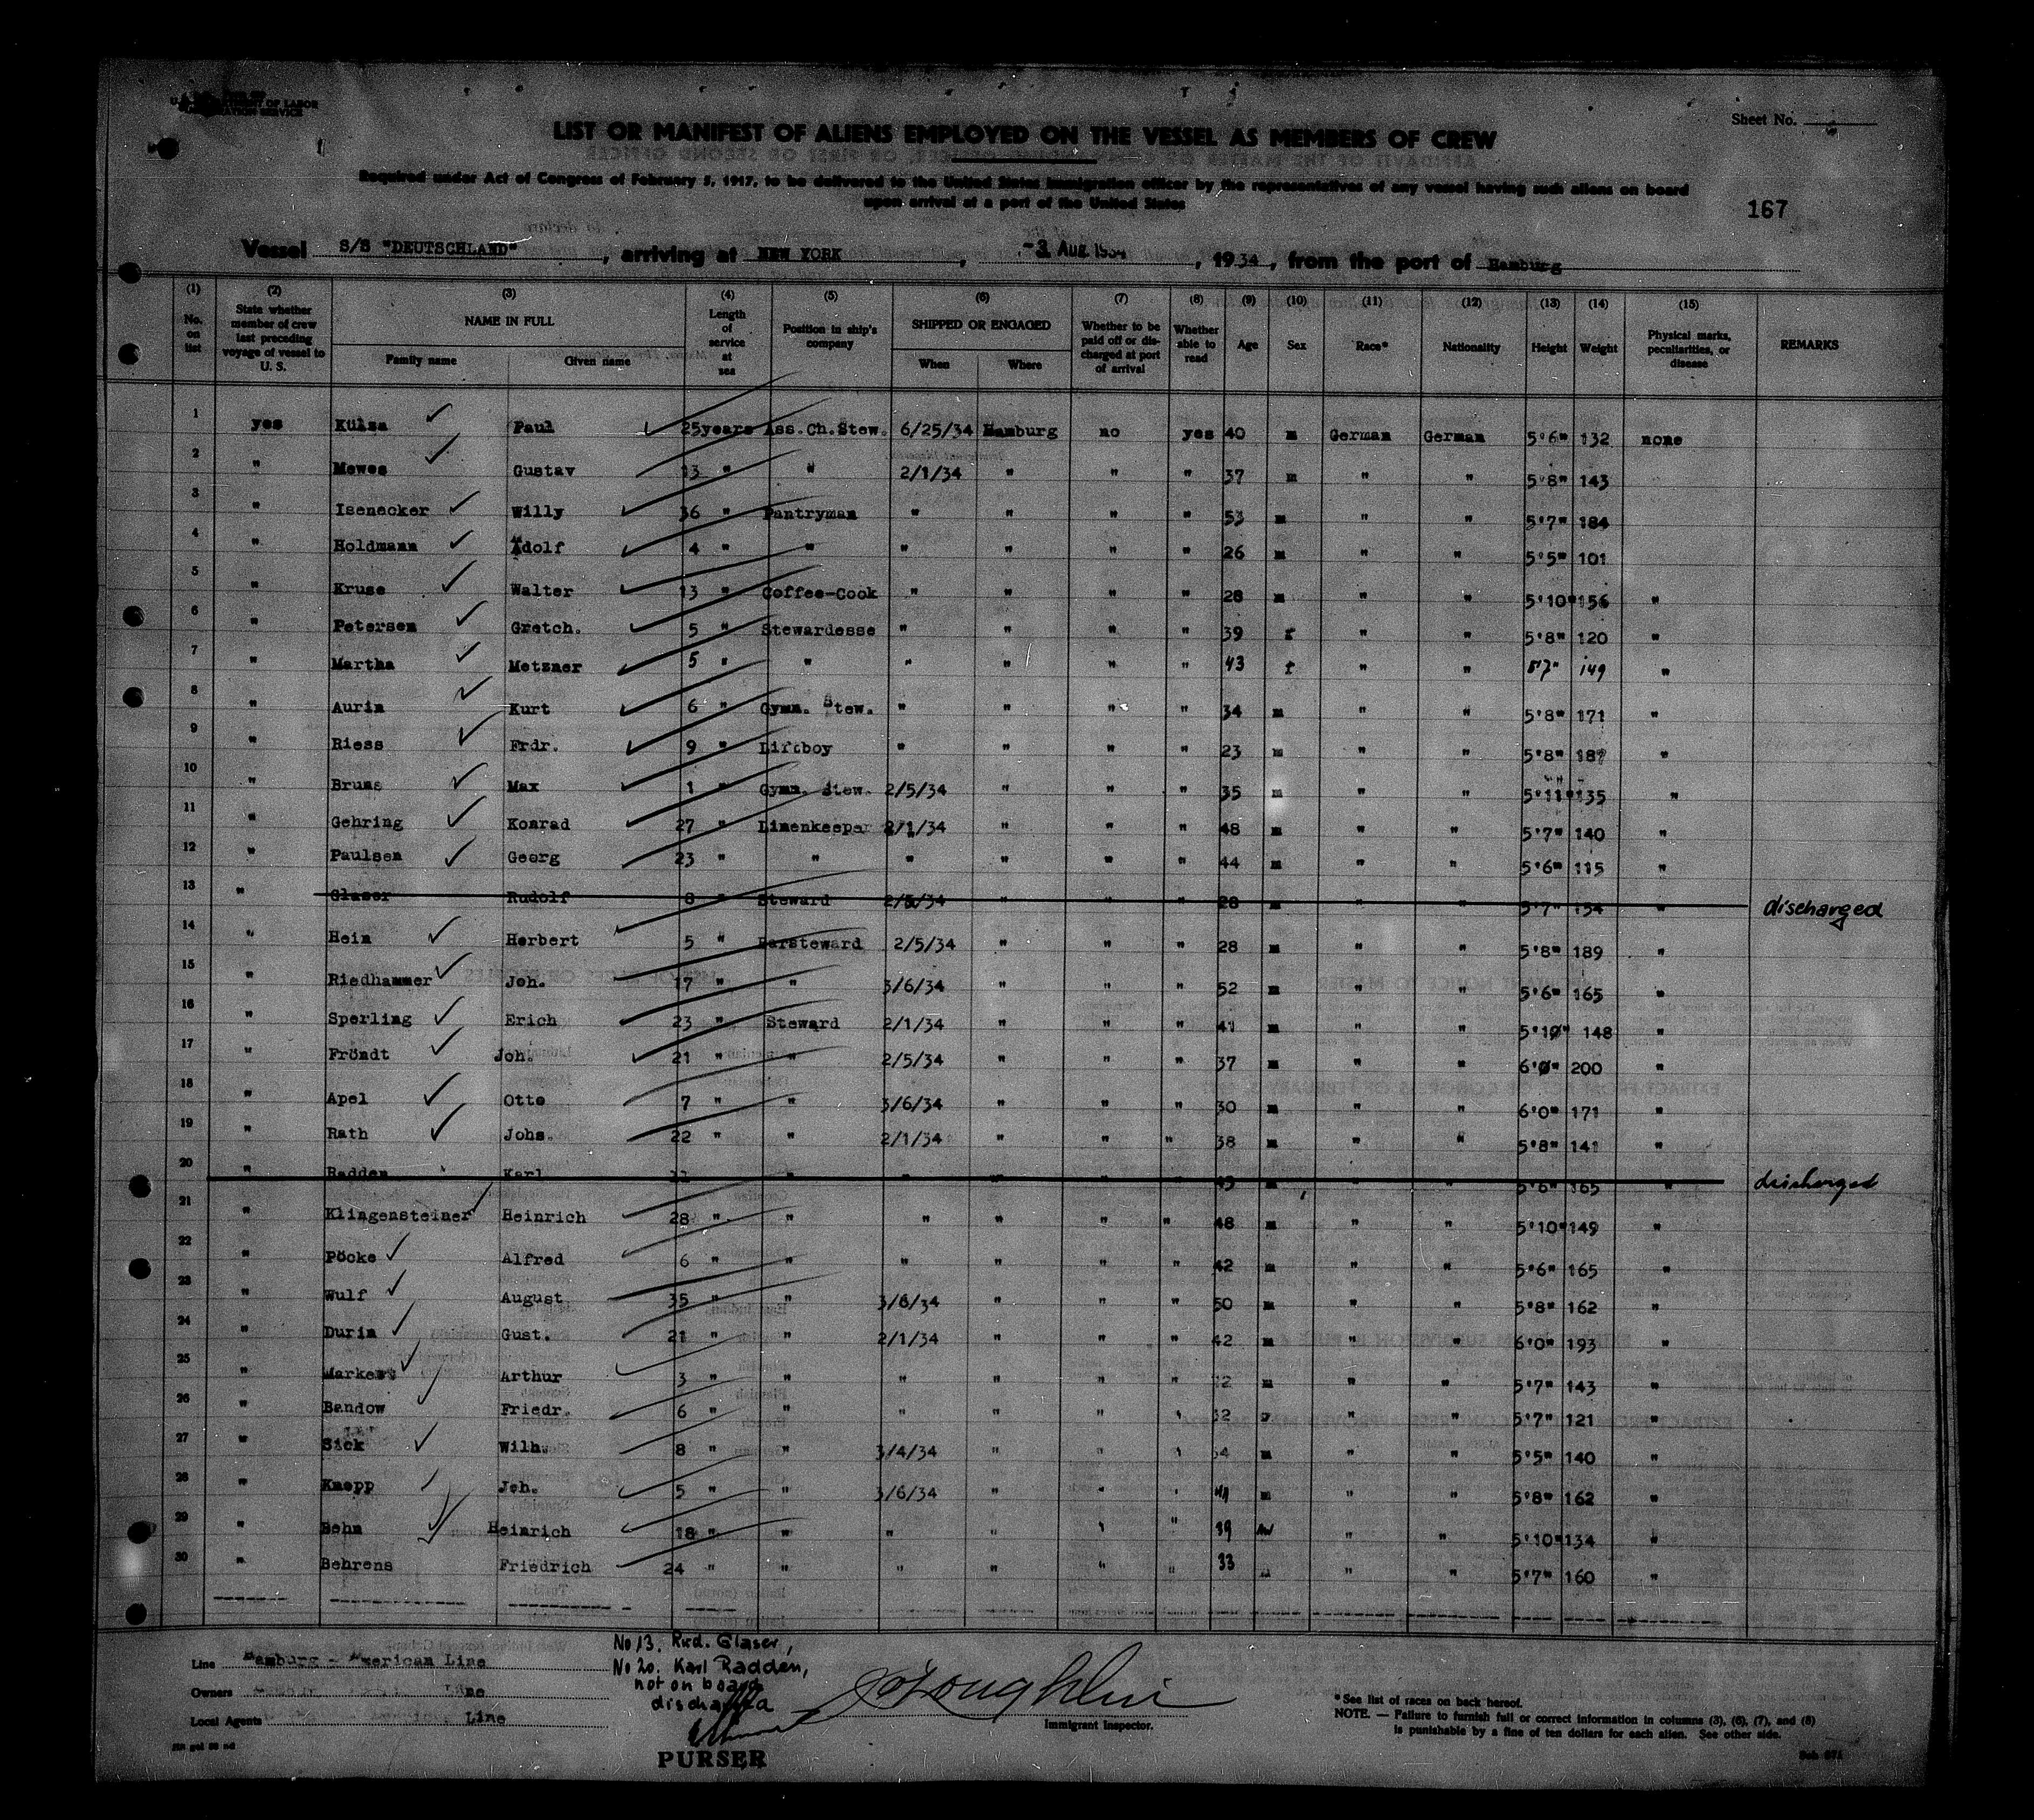 U.S. DEPARTMENT OF LABOR
IMMIGRATION SERVICE
Sheet No.
LIST OR MANIFEST OF ALIENS EMPLOYED ON THE VESSEL AS MEMBERS OF CREW
Required under Act of Congress of February 5, 1917, to be delivered to the United States immigration officer by the representatives of any vessel having such aliens on board
upon arrival at a port of the United States
167
Vessel S/S "DEUTSCHLAND", arriving at NEW YORK, -3 Aug 1934, 1934, from the port of Hamburg
(1) (2) (3) (4) (5) (6) (7) (8) (9) (10) (11) (12) (13) (14) (15)
No. on list State whether member of crew last preceding voyage of vessel to U. S. NAME IN FULL Family name Given name Length of service at sea Position in ship's company SHIPPED OR ENGAGED When Where Whether to be paid off or discharged at port of arrival Whether able to read Age Sex Race* Nationality Height Weight Physical marks, peculiarities, or disease REMARKS
1 yes Külsa Paul 25years Ass.Ch.Stew. 6/25/34 Hamburg no yes 40 m German German 5'6" 132 none
2 " Mewes Gustav 13 " " 2/1/34 " " " 37 m " " 5'8" 143
3 " Isenecker Willy 36 " Pantryman " " " " 53 m " " 5'7" 184
4 " Holdmann Adolf 4 " " " " " " 26 m " " 5'5" 101
5 " Kruse Walter 13 " Coffee-Cook " " " " 28 m " " 5'10" 156 "
6 " Petersen Gretch. 5 " Stewardesse " " " " 39 f " " 5'8" 120 "
7 " Martha Metzner 5 " " " " " " 43 f " " 5'7" 149 "
8 " Aurin Kurt 6 " Gymn. Stew. " " " " 34 m " " 5'8" 171 "
9 " Riess Frdr. 9 " Liftboy " " " " 23 m " " 5'8" "
10 " Bruns Max 1 " Gymn. Stew. 2/5/34 " " " 35 m " " 5'11" 135 "
11 " Gehring Konrad 27 " Linenkeeper 2/1/34 " " " 48 m " " 5'7" 140 "
12 " Paulsen Georg 23 " " " " " " 44 m " " 5'6" 115 "
13 " Glaser Rudolf 8 " Steward 2/5/34 " " " 28 m " " 5'7" 154 " discharged
14 " Hein Herbert 5 " Barsteward 2/5/34 " " " 28 m " " 5'8" 189 "
15 " Riedhammer Joh. 17 " " 3/6/34 " " " 52 m " " 5'6" 165 "
16 " Sperling Erich 23 " Steward 2/1/34 " " " 41 m " " 5'10" 148 "
17 " Fröndt Joh. 21 " " 2/5/34 " " " 37 m " " 6'0" 200 "
18 " Apel Otto 7 " " 3/6/34 " " " 30 m " " 6'0" 171 "
19 " Rath Johs. 22 " " 2/1/34 " " " 38 m " " 5'8" 141 "
20 " Radden Karl " " " " " m " " 5'6" 165 " discharged
21 " Klingensteiner Heinrich 28 " " " " " " 48 m " " 5'10" 149 "
22 " Pöcke Alfred 6 " " " " " " 42 m " " 5'6" 165 "
23 " Wulf August 35 " " 3/6/34 " " " 50 m " " 5'8" 162 "
24 " Durin Gust. 21 " " 2/1/34 " " " 42 m " " 6'0" 193 "
25 " Arthur 3 " " " " " " m " " 5'7" 143 "
26 " Bandow Friedr. 6 " " " " " " 32 " " 5'7" 121 "
27 " Sick Wilh. 8 " " 3/4/34 " " " m " " 5'5" 140 "
28 " Knopp Joh. 5 " " 3/6/34 " " " m " " 5'8" 162 "
29 " Behn Heinrich 18 " " " " " " 39 m " " 5'10" 134 "
30 " Behrens Friedrich 24 " " " " " " 33 m " " 5'7" 160 "
Line Hamburg - American Line
Owners Line
Local Agents Line
No 13. Rud. Glaser,
No 20. Karl Radden,
not on board
PURSER
Immigrant Inspector.
*See list of races on back hereof.
NOTE. — Failure to furnish full or correct information in columns (3), (6), (7), and (8)
is punishable by a fine of ten dollars for each alien. See other side.